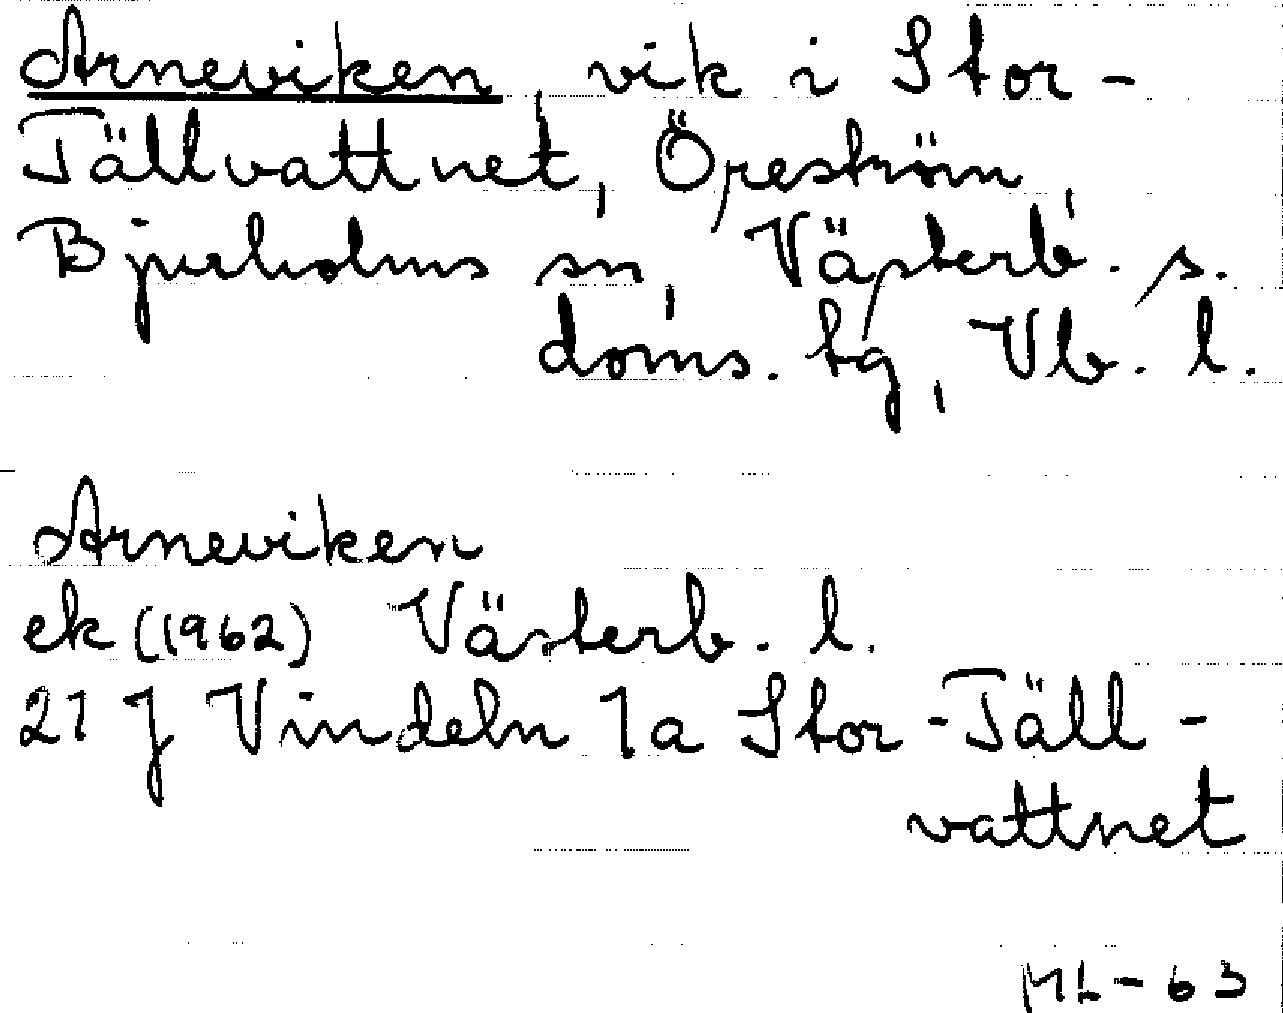 Arneviken, vik i Stor-
Tällvattnet, Öreström,
Bjurholms sn, Västerb. s.
doms. tg, Vb. l.
Arneviken
ek (1962) Västerb. l.
21 J Vindeln 1a Stor-Täll-
vattnet
ML-63